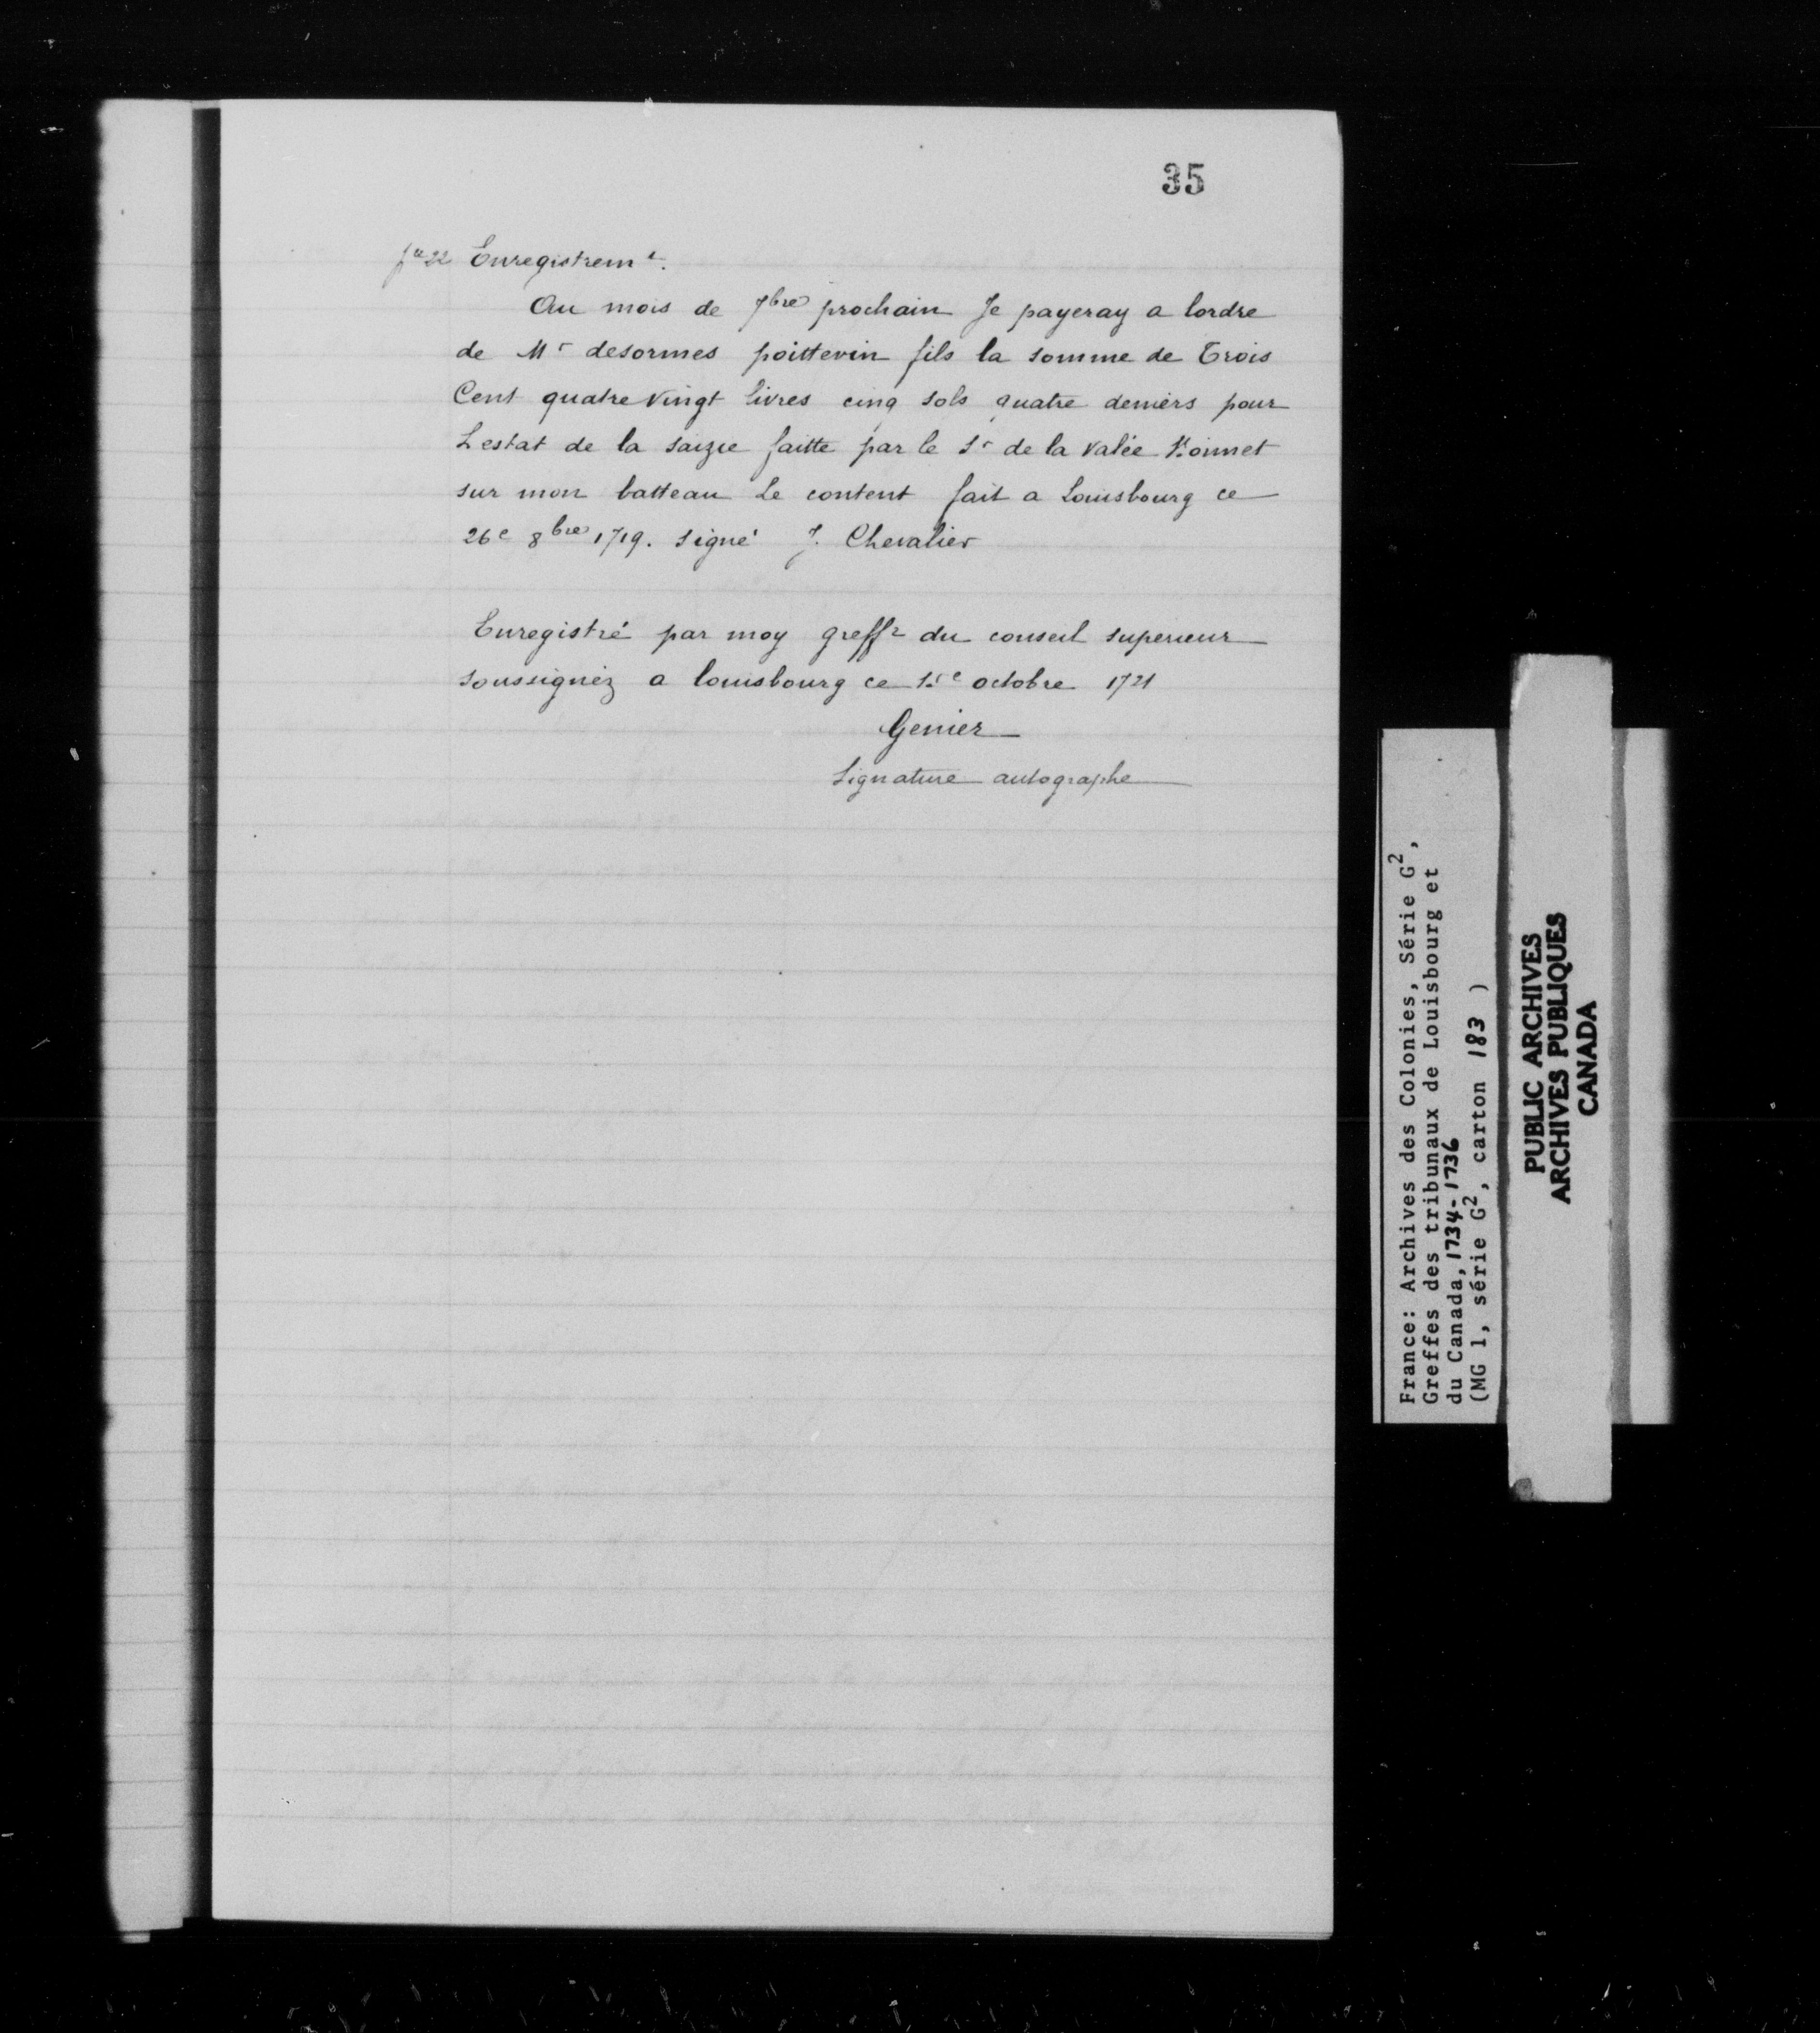 35
fo 22 Enregistremt.
Au mois de 7bre prochain Je payeray a lordre
de Mr desormes poittevin fils la somme de Trois
Cent quatre Vingt livres cinq sols quatre deniers pour
L'estat de la saizie faitte par le Sr de la Valée
sur mon batteau Le content fait a Louisbourg ce
26e 8bre 1719. Signé J. Chevalier
Enregistré par moy greffr du conseil superieur
soussignéz a louisbourg ce 15e octobre 1721
Genier
Signature autographe
France: Archives des Colonies, Série G2,
Greffes des tribunaux de Louisbourg et
du Canada, 1734-1736
(MG 1, série G2, carton 183 )
PUBLIC ARCHIVES
ARCHIVES PUBLIQUES
CANADA